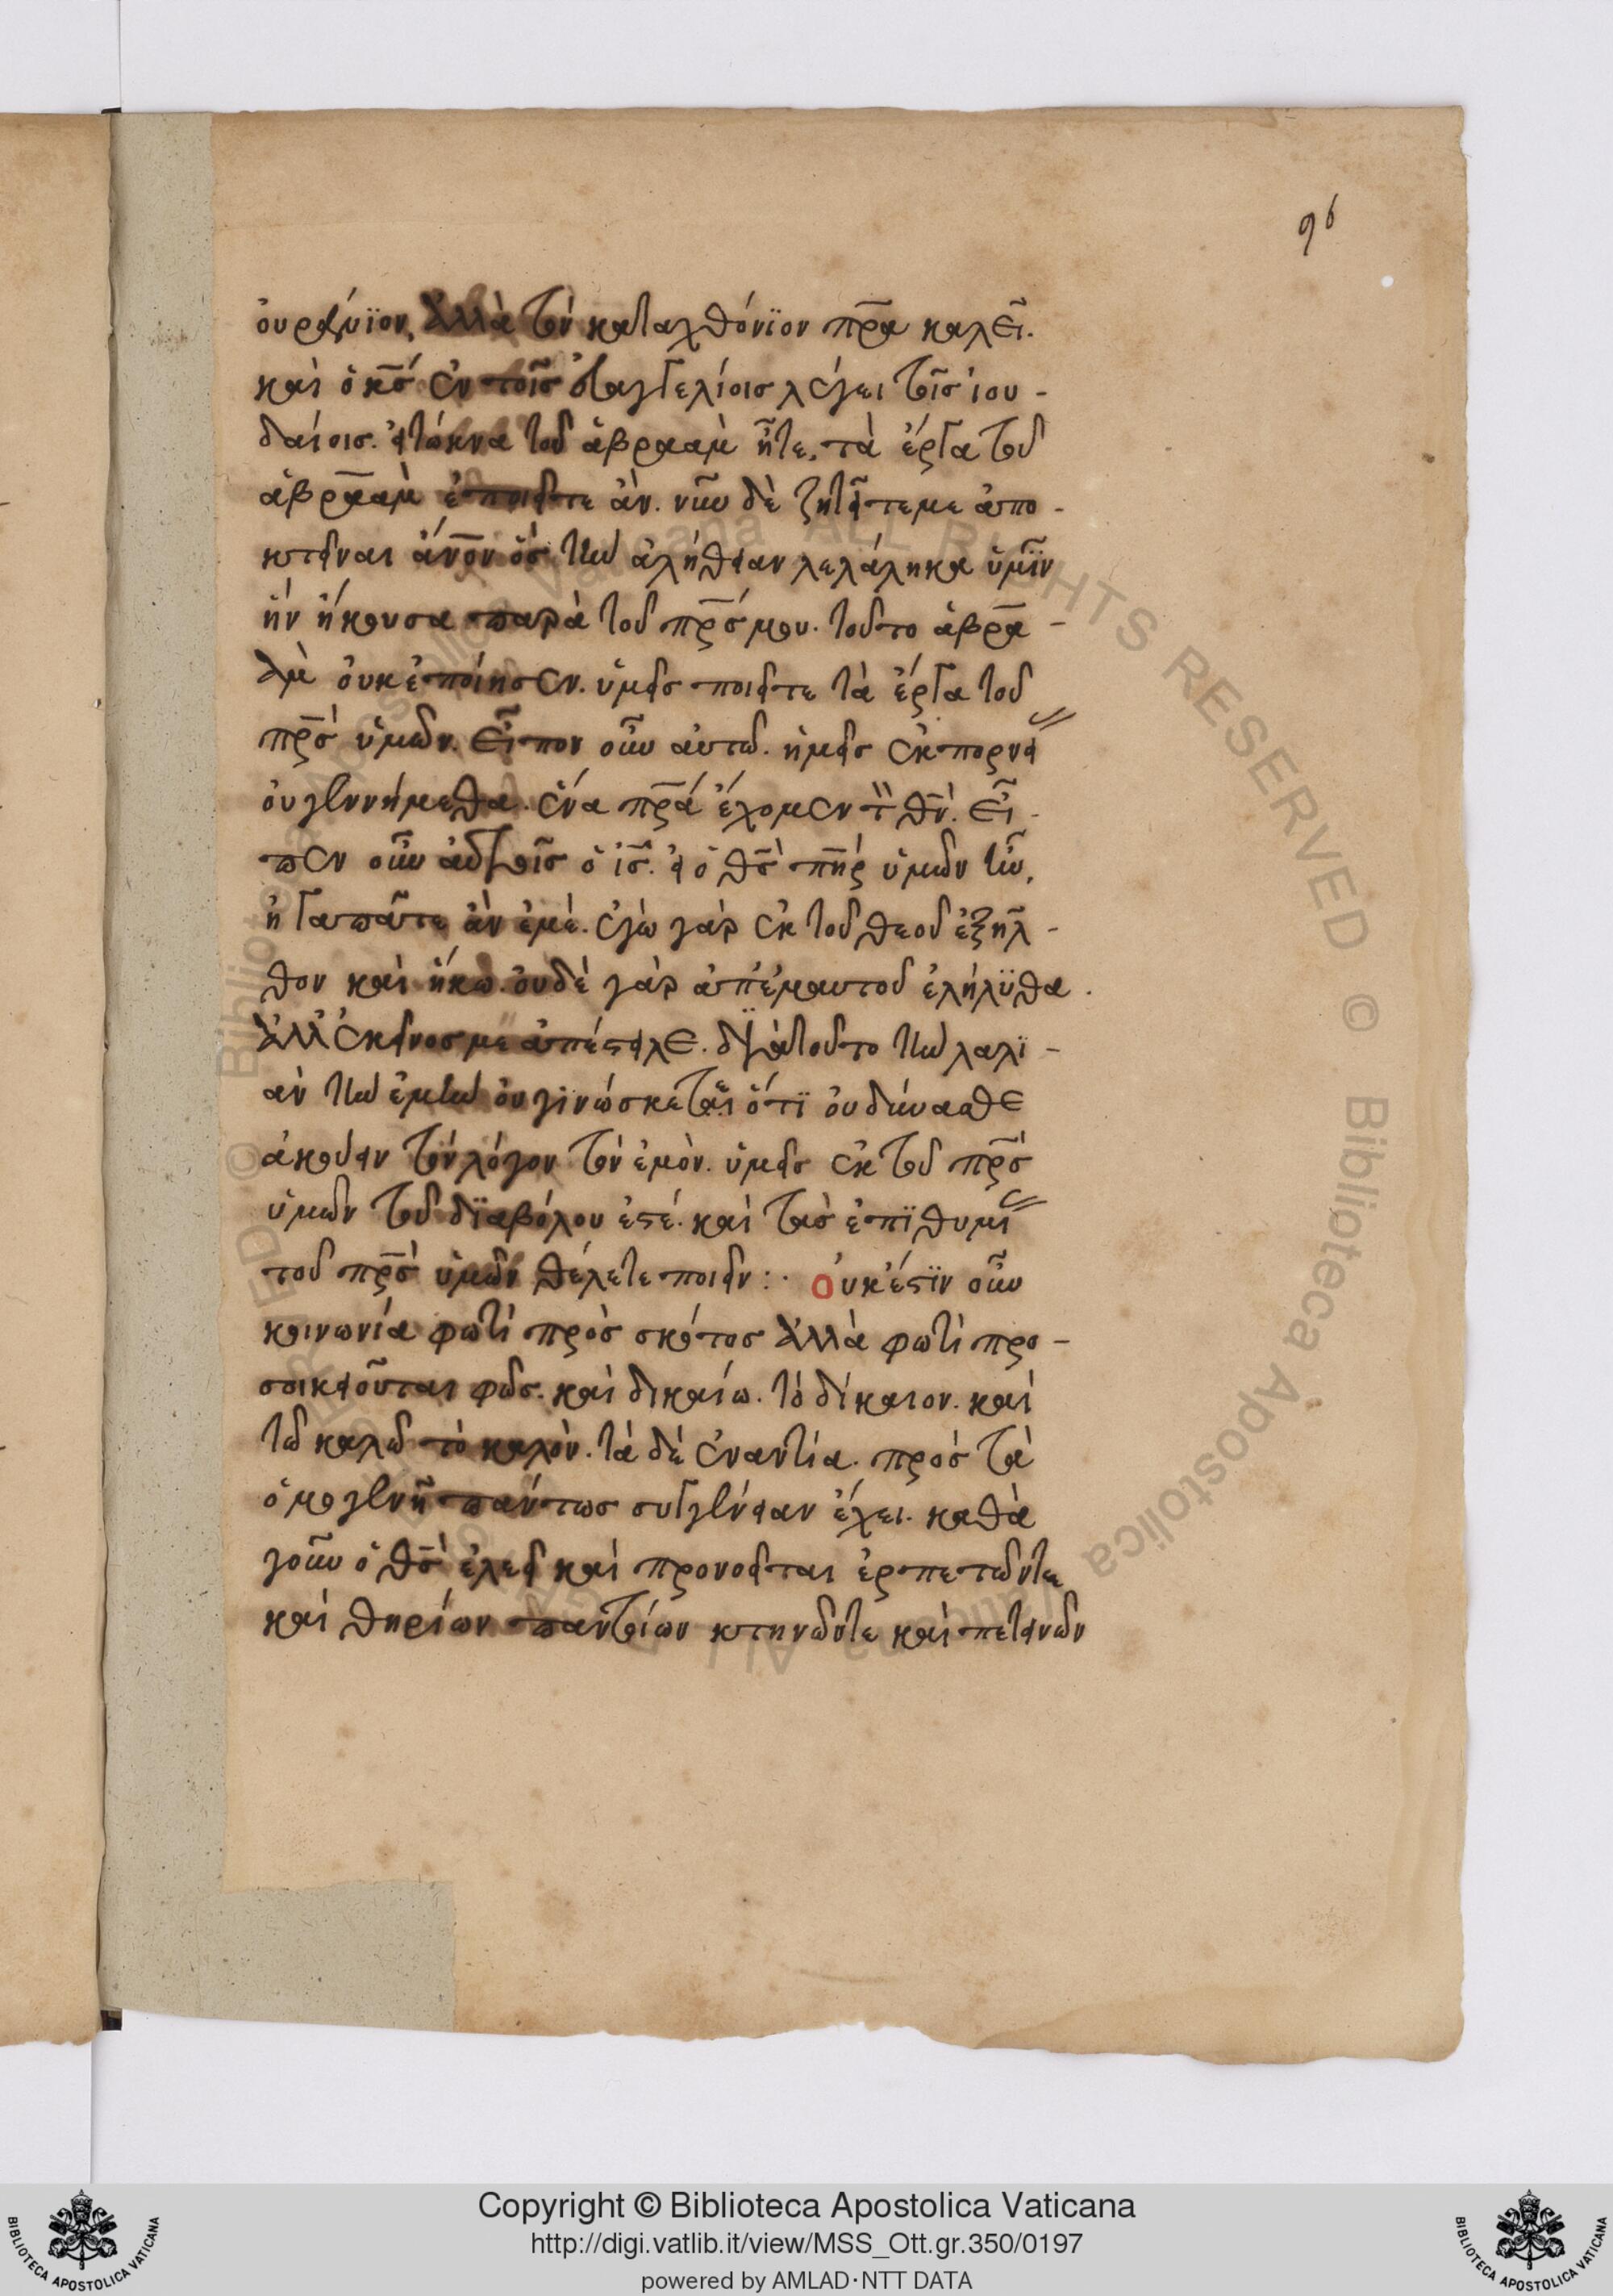 96
οὐράνϊον, ἀλλὰ τὸν καταχθόνϊον πρ̅α καλεῖ.
καὶ ὁ κ̅ς ἐν τοῖς εὐαγγελίοις λέγει τοῖς ἰου-
δαίοις. εἰ τέκνα τοῦ ἀβραὰμ ἦτε, τὰ ἔργα τοῦ
ἀβραὰμ ἐποιεῖτε ἄν. νῦν δὲ ζητεῖτε με ἀπο-
κτεῖναι ἄν̅ον ὃς τὴν ἀλήθειαν λελάληκα ὑμῖν
ἣν ἤκουσα παρὰ τοῦ πρ̅ς μου. τοῦτο ἀβρα-
ὰμ οὐκ ἐποίησεν. ὑμεῖς ποιεῖτε τὰ ἔργα τοῦ
πρ̅ς ὑμῶν. εἶπον οὖν αὐτῶ. ἡμεῖς ἐκ πορνεί
οὐ γεννήμεθα. ἕνα πρ̅α ἔχομεν τ̀ θ̅ν. εἶ-
πεν οὖν αὐτοῖς ὁ ἰ̅ς. εἰ ὁ θ̅ς π̅ηρ ὑμῶν ἦν,
ἠγαπᾶτε ἂν ἐμέ. ἐγὼ γὰρ ἐκ τοῦ θεοῦ ἐξῆλ-
θον καὶ ἥκω. οὐδὲ γὰρ ἀπ' ἐμαυτοῦ ἐλήλϋθα.
ἀλλ' ἐκεῖνος με ἀπέστειλε. δϊατοῦτο τὴν λαλϊ-
ὰν τὴν ἐμὴν οὐ γϊνώσκεται ὅτϊ οὐ δύνασθε
ἀκούειν τὸν λόγον τὸν ἐμὸν. ὑμεῖς ἐκ τοῦ πρ̅ς
ὑμῶν τοῦ δϊαβόλου ἐστέ. καὶ τὰς ἐπϊθυμί
τοῦ πρ̅ς ὑμῶν θέλετε ποιεῖν :· οὐκ ἔστϊν οὖν
κοινωνία φωτὶ πρὸς σκότος ἀλλὰ φωτὶ προ-
σοικειοῦται φῶς. καὶ δικαίω. τὸ δίκαιον. καὶ
τῶ καλῶ τὸ καλὸν. τὰ δὲ ἐναντία. πρὸς τὰ
ὁμογενῆ πάντως συγγένειαν ἔχει. καθὰ
γοῦν ὁ θ̅ς ἐλεεῖ καὶ προνοεῖται ἑρπετῶντε
καὶ θηρίων παντοίων κτηνῶντε καὶ πετεινῶν
Copyright © Biblioteca Apostolica Vaticana
http://digi.vatlib.it/view/MSS_Ott.gr.350/0197
powered by AMLAD·NTT DATA